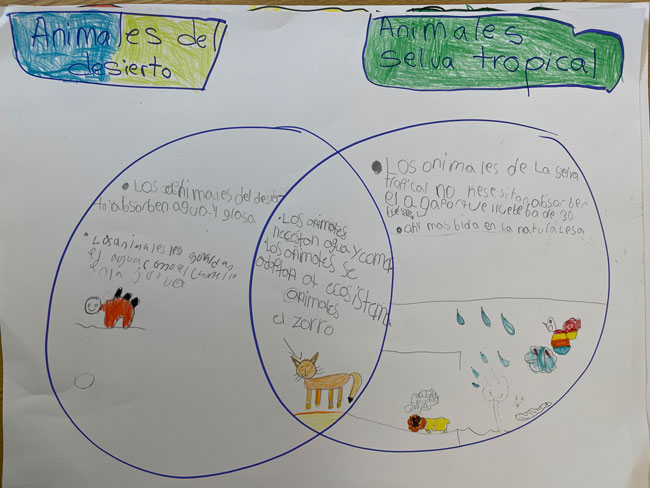 Animales del
desierto
Animales
selva tropical
• Los animales del desier-
to absorben agua y grasa
• Los animales les guardan
el agua como el camello
Los animales
necesitan agua y comer
Los animales se
adaptan al ecosistema
animales
el zorro
• Los animales de la selva
tropical no nesesitan absorber
el agua porque llueve
• ahi mas bida en la naturalesa